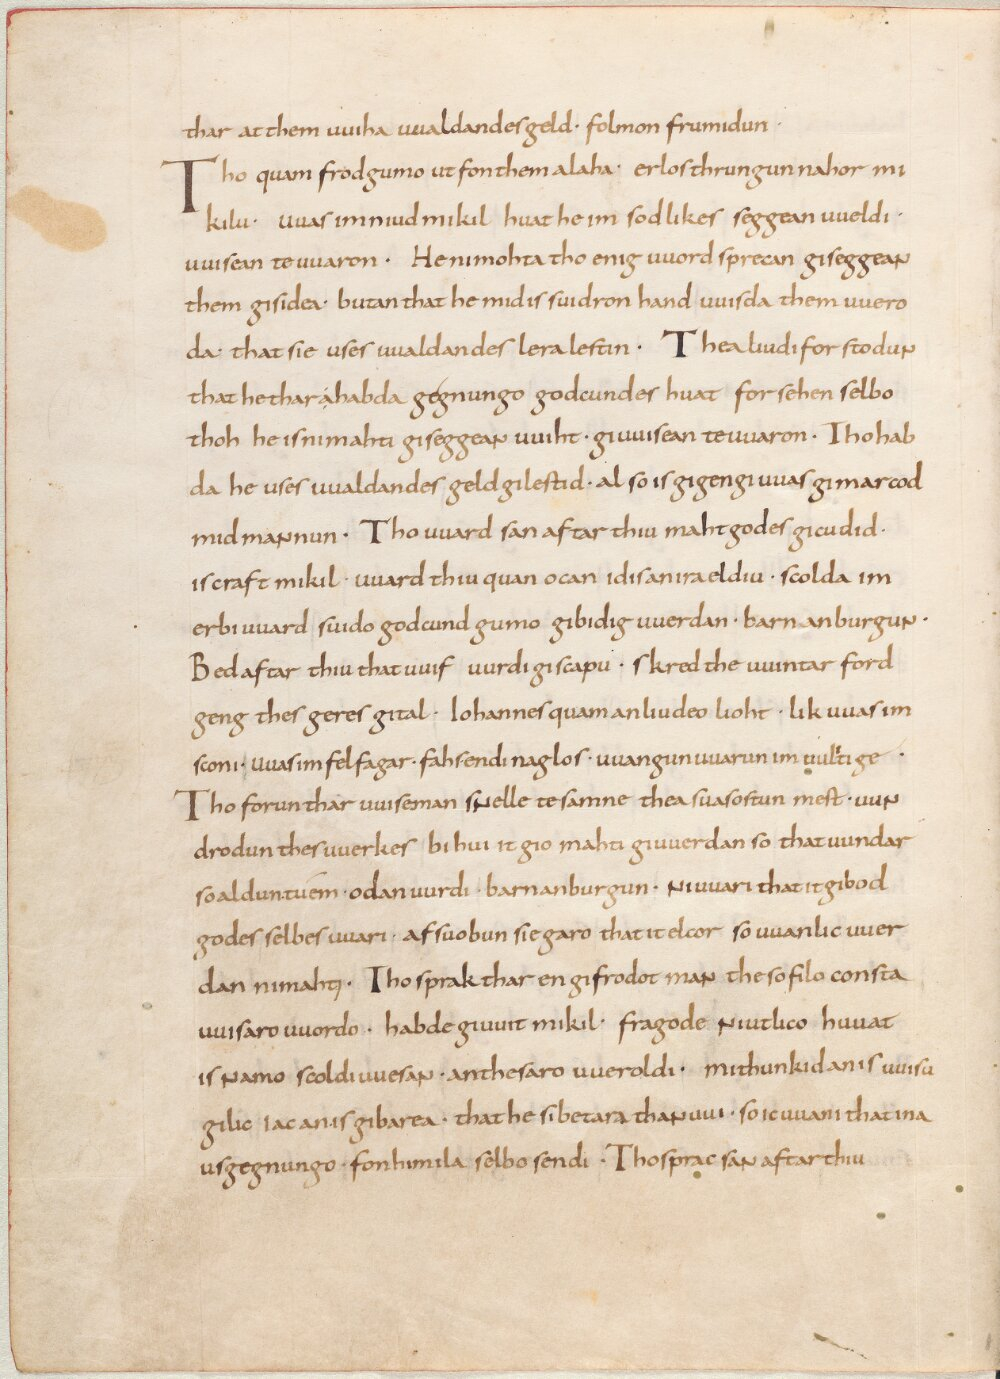 thar at them uuiha uualdandes geld · folmon frumidun ·
Tho quam frod gumo ut fon them alaha · erlos thrungun nahor mi
kilu · uuas im niud mikil huat he im sodlikes seggean uueldi ·
uuisean te uuaron · He ni mohta tho enig uuord sprecan giseggean
them gisidea · butan that he mid is suidron hand uuisda them uuero
da · that sie uses uualdandes lera lestin · Thea liudi forstodun
that he thar ahabda gegnungo godcundes huat forsehen selbo
thoh he is ni mahti giseggean uuiht · giuuisean te uuaron · Tho hab
da he uses uualdandes geld gilestid · al so is gigengi uuas gimarcod
mid mannun · Tho uuard san aftar thiu maht godes gicudid ·
is craft mikil · uuard thiu quan ocan idis an ira eldiu · scolda im
erbiuuard suido godcund gumo gibidig uuerdan · barn an burgun ·
Bed aftar thiu that uuif uurdigiscapu · skred the uuintar ford
geng thes geres gital · Iohannes quam an liudeo lioht · lik uuas im
sconi · uuas im fel fagar · fahs endi naglos · uuangun uuarun im uulitige ·
Tho forun thar uuise man snelle tesamne thea suasostun mest · uun
drodun thes uuerkes bi hui it gio mahti giuuerdan so that undar
so aldun tuem · odan uurdi · barn an burgun · ni uuari that it gibod
godes selbes uuari · afsuobun sie garo that it elcor so uuanlic uuer
dan ni mahti · Tho sprak thar en gifrodot man the so filo consta
uuisaro uuordo · habde giuuit mikil · fragode niutlico huuat
is namo scoldi uuesan · an thesaro uueroldi · mi thunkid an is uuisu
gilic iac an is gibarea · that he si betara than uui · so ic uuani that ina
us gegnungo · fon himila selbo sendi · Tho sprac san aftar thiu